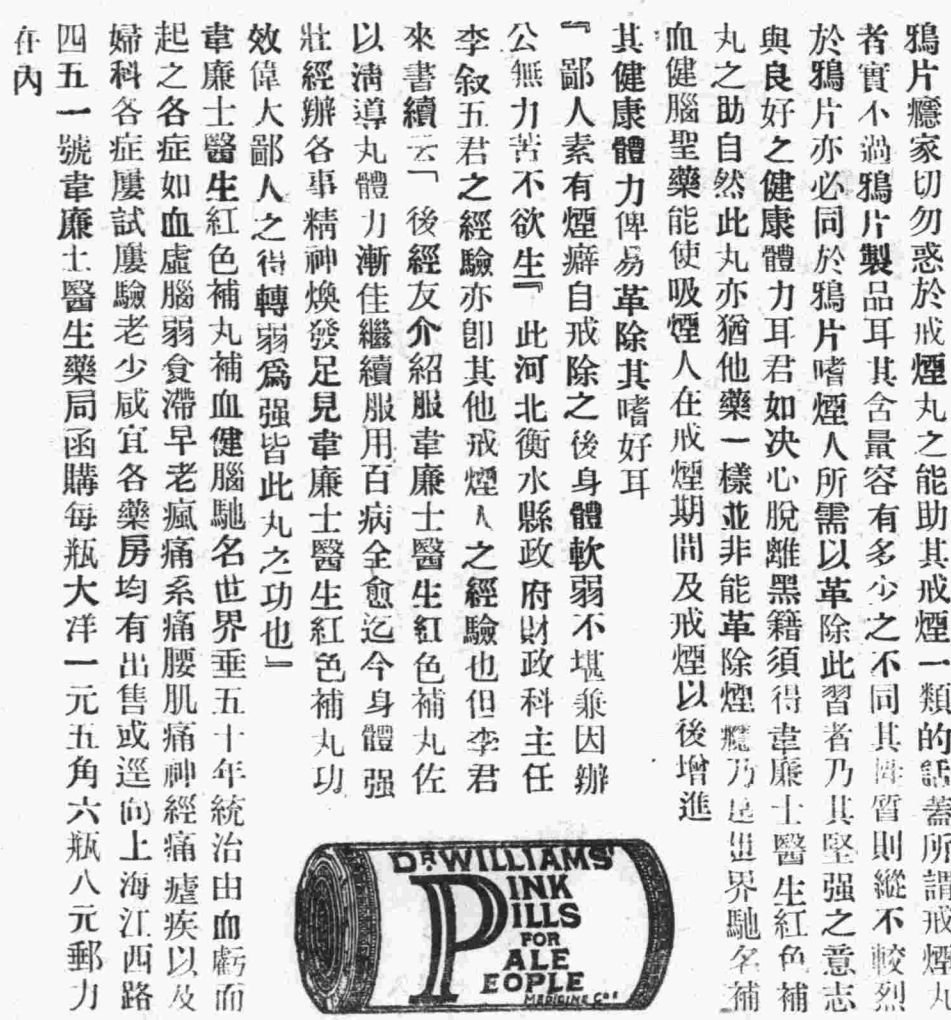 鴉片癮家切勿惑於戒煙丸之能助其戒煙一類的話蓋所謂戒煙丸
者實不過鴉片製品耳其含量容有多少之不同其性質則縱不較烈
於鴉片亦必同於鴉片嗜煙人所需以革除此習者乃其堅强之意志
與良好之健康體力耳君如决心脫離黑籍須得韋廉士醫生紅色補
丸之助自然此丸亦猶他藥一樣並非能革除煙癮乃是世界馳名補
血健腦聖藥能使吸煙人在戒煙期間及戒煙以後增進
其健康體力俾易革除其嗜好耳
『鄙人素有煙癖自戒除之後身體軟弱不堪兼因辦
公無力苦不欲生』此河北衡水縣政府財政科主任
李叙五君之經驗亦卽其他戒煙人之經驗也但李君
來書續云「後經友介紹服韋廉士醫生紅色補丸佐
以清導丸體力漸佳繼續服用百病全愈迄今身體强
壯經辦各事精神煥發足見韋廉士醫生紅色補丸功
效偉大鄙人之得轉弱爲强皆此丸之功也」
韋廉士醫生紅色補丸補血健腦馳名世界垂五十年統治由血虧而
起之各症如血虛腦弱食滯早老瘋痛系痛腰肌痛神經痛瘧疾以及
婦科各症屢試屢驗老少咸宜各藥房均有出售或逕向上海江西路
四五一號韋廉士醫生藥局函購每瓶大洋一元五角六瓶八元郵力
在內
DR WILLIAMS'
PINK
PILLS
FOR
PALE
PEOPLE
MEDICINE Co.